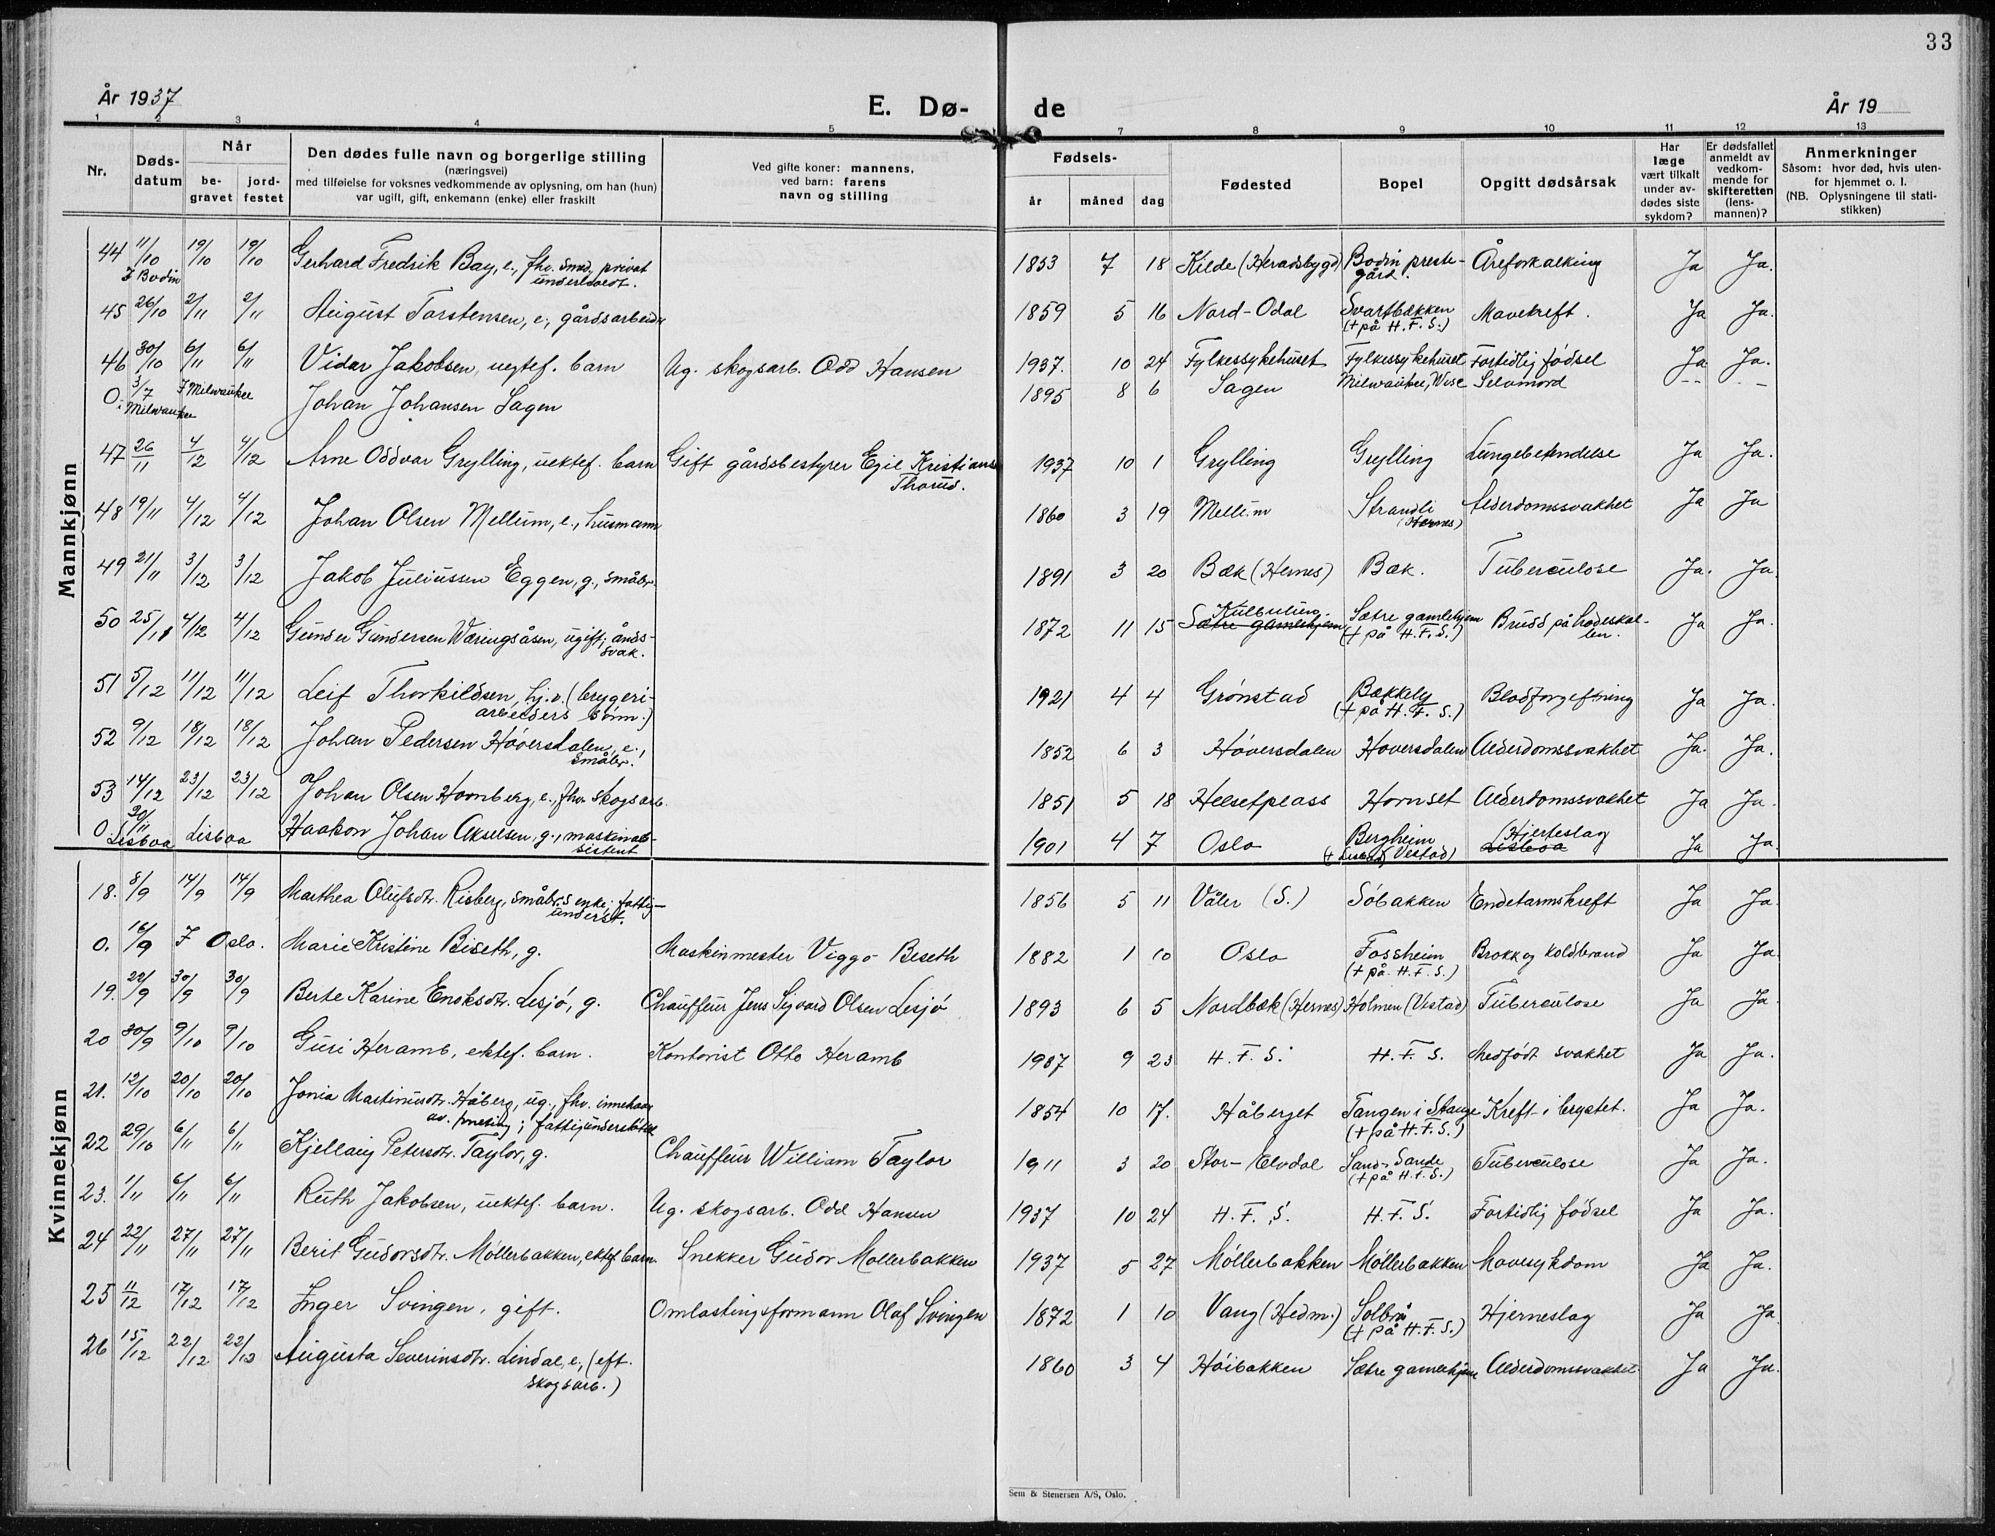 33
År 1937
E. Dø-
de
År 19
1 2 3 4 5 7 8 9 10 11 12 13
Nr.
Døds-
datum
Når
be-
gravet
jord-
festet
Den dødes fulle navn og borgerlige stilling
(næringsvei)
med tilføielse for voksnes vedkommende av oplysning, om han (hun)
var ugift, gift, enkemann (enke) eller fraskilt
Ved gifte koner: mannens,
ved barn: farens
navn og stilling
Fødsels-
år måned dag
Fødested
Bopel
Opgitt dødsårsak
Har
læge
vært tilkalt
under av-
dødes siste
sykdom?
Er dødsfallet
anmeldt av
vedkom-
mende for
skifteretten
(lens-
mannen)?
Anmerkninger
Såsom: hvor død, hvis uten-
for hjemmet o. l.
(NB. Oplysningene til stati-
stikken)
Mannkjønn
44 11/10 19/10 19/10 Gerhard Fredrik Bay, e., fhv. smed, privat 1853 7 18 Kilde (Heradsbygd) Bodin preste- Åreforkalking Ja Ja.
I Bodin gård.
45 26/10 2/11 2/11 August Torstensen, e., gårdsarbeider 1859 5 16 Nord-Odal Svartbækken Mavekreft. Ja Ja.
(+ på H.F.S.)
46 30/10 6/11 6/11 Vidar Jakobsen, uegtef. barn Ug. skogsarb. Odd Hansen 1937. 10 24 Fylkessykehuset Fylkessykehuset Fortidlig fødsel Ja Ja.
0. 3/7 I Milwaukee Johan Johansen Sagen 1895 8 6 Sagen Milwaukee, Wisc Selvmord -- --
i Milwaukee
47 26/11 4/12 4/12 Arne Oddvar Grylling, uektef. barn Gift gårdsbestyrer Egil Kristians 1937 10 1 Grylling Grylling Lungebetendelse Ja Ja.
Thorud.
48 19/11 4/12 4/12 Johan Olsen Mellum, e., husmann 1860 3 19 Mellum Strandli Alderdomssvakhet Ja Ja
(Hernes)
49 21/11 3/12 3/12 Jakob Juliussen Eggen, g., småbr. 1891 3 20 Bæk (Hernes) Bæk. Tuberculose Ja. Ja.
50 25/11 4/12 4/12 Gunder Gundersen Væringsåsen, ugift; ånds- 1872 11 15 Sætre gamlehjem Sætre gamlehjem Brudd på hodeskal- Ja Ja.
svak. (+ på H.F.S.) len.
51 5/12 11/12 11/12 Leif Thorkildsen, hj.v. (bryggeri- 1921 4 4 Grønstad Bækkely Blodforgiftning Ja Ja.
arbeiders sønn.) (+ på H.F.S.)
52 9/12 18/12 18/12 Johan Pedersen Høversdalen, e., 1852 6 3 Høversdalen Hoversdalen Alderdomssvakhet Ja. Ja.
småbr.
53 14/12 23/12 23/12 Johan Olsen Hornberg, e., fhv. skogsarb. 1851 5 18 Helsetplass Hornset Alderdomssvakhet Ja Ja.
0. 30/11 Lisboa Lisboa Haakon Johan Akselsen, g., maskinas- 1901 4 7 Oslo Bergheim Hjerteslag Ja Ja.
sistent Vestad) Lisboa
Kvinnekjønn
18. 8/9 14/9 14/9 Marthea Olufsdtr. Risberg, småbr.s enke; fattig- 1856 5 11 Våler (S.) Søbakken Endetarmskreft Ja Ja.
underst.
0. 16/9 I Oslo. Marie Kristine Biseth, g. Maskinmester Viggo Biseth 1882 1 10 Oslo Fossheim Brokk og koldbrand Ja Ja.
(+ på H.F.S.)
19. 22/9 30/9 30/9 Berte Karine Enoksdtr. Lesjø, g. Chauffeur Jens Sigvard Olsen Lesjø 1893 6 5 Nordbæk (Hernes) Holmen (Vestad) Tuberculose Ja Ja.
20 30/9 9/10 9/10 Guri Heramb, ektef. barn. Kontorist Otto Heramb 1937 9 23 H.F.S. H.F.S. Medfødt svakhet Ja Ja.
21. 12/10 20/10 20/10 Jonia Martinusdtr. Håberg, ug., fhv. innehaver 1854 10 17. Håberget Tangen i Stange Kreft i brystet. Ja Ja.
fattigunderstøttet (+ på H.F.S.)
22 29/10 6/11 6/11 Kjellaug Petersdtr. Taylor, g. Chauffeur William Taylor 1911 3 20 Stor-Elvdal Sand-Sande Tuberculose Ja Ja.
(+ på H.F.S.)
23. 1/11 6/11 6/11 Ruth Jakobsen, uektef. barn. Ug. skogsarb. Odd Hansen 1937 10 24 H.F.S. H.F.S. Fortidlig fødsel Ja Ja.
24 22/11 27/11 27/11 Berit Gudorsdtr. Møllerbakken, ektef. barn Snekker Gudor Møllerbakken 1937 5 27 Møllerbakken Møllerbakken Mavesykdom Ja Ja.
25 11/12 17/12 17/12 Inger Svingen, gift. Omlastingsformann Olaf Svingen 1872 1 10 Vang (Hedm.) Solbrå Hjerneslag Ja Ja.
(+ på H.F.S.)
26 15/12 22/12 22/12 Augusta Severinsdtr. Lindal, e., (eft. 1860 3 4 Høibakken Sætre gamlehjem Alderdomssvakhet Ja Ja.
skogsarb.)
Sem & Stenersen A/S, Oslo.